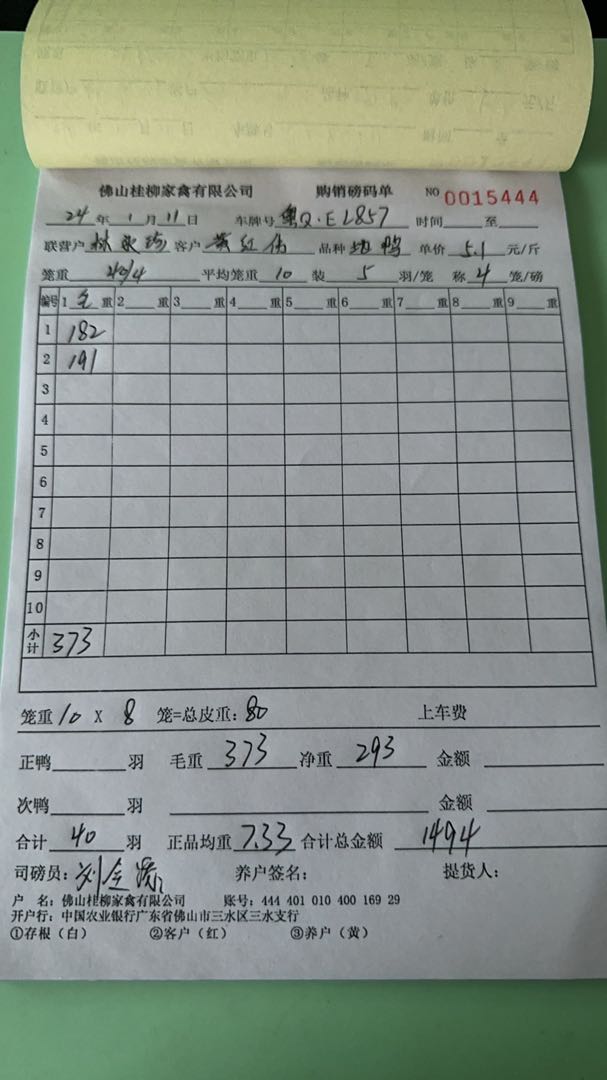 佛山桂柳家禽有限公司 购销磅码单 NO 0015444
24年1月11日 车牌号粤Q·EL857 时间 至
联营户林 客户黄红伟 品种 鸭 单价5.1元/斤
笼重40/4 平均笼重10 装5羽/笼 称4笼/磅
编号 1毛重 2 重 3 重 4 重 5 重 6 重 7 重 8 重 9 重
1 182
2 191
3
4
5
6
7
8
9
10
小计 373
笼重10 X 8 笼=总皮重:80 上车费
正鸭 羽 毛重373 净重293 金额
次鸭 羽 金额
合计40羽 正品均重7.33 合计总金额1494
司磅员:刘金 养户签名: 提货人:
户 名:佛山桂柳家禽有限公司 账号:444 401 010 400 169 29
开户行:中国农业银行广东省佛山市三水区三水支行
①存根(白) ②客户(红) ③养户(黄)